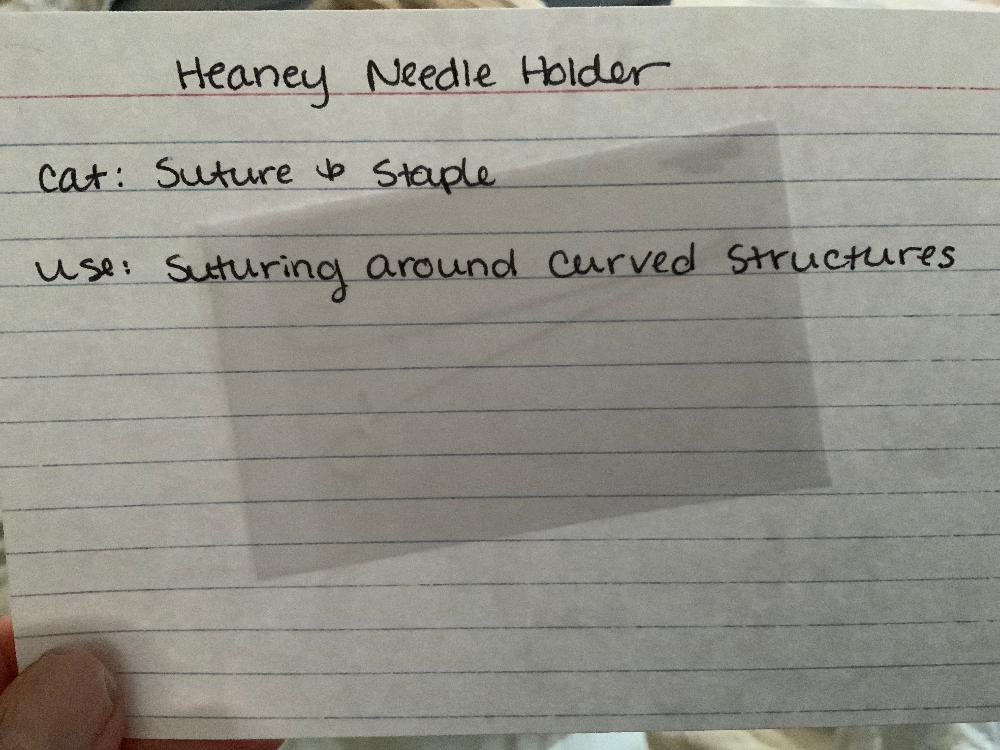 Heaney Needle Holder
cat: Suture & Staple
use: Suturing around curved structures